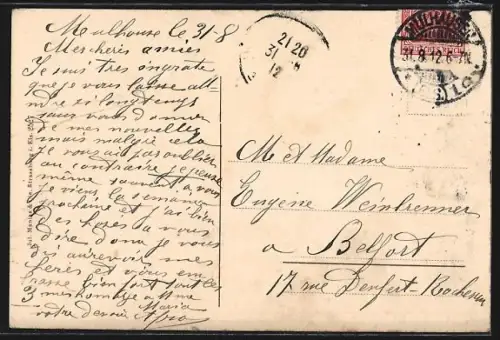 Mulhouse le 31-8
Mes cheris amies
Je suis tres ingrate
que je vous laisse att-
ndre si longtemps
sans vous donner
de mes nouvelles
mais malgré cela
je vous ai pas oublier
au contraire je pense
même souvent a vous
je viens la semaine
prochaine et j'ai bien
des choses a vous
dire donc je vous
dis aurevoir mes
cheres et vous em-
brasse bien fort tout les
3 mes homage a Mme
Maria
votre
21 20
31
12
31.8.12.6-7N.
M et Madame
Eugene Weinbrenner
a Belfort
17 rue Denfert-Rochereau